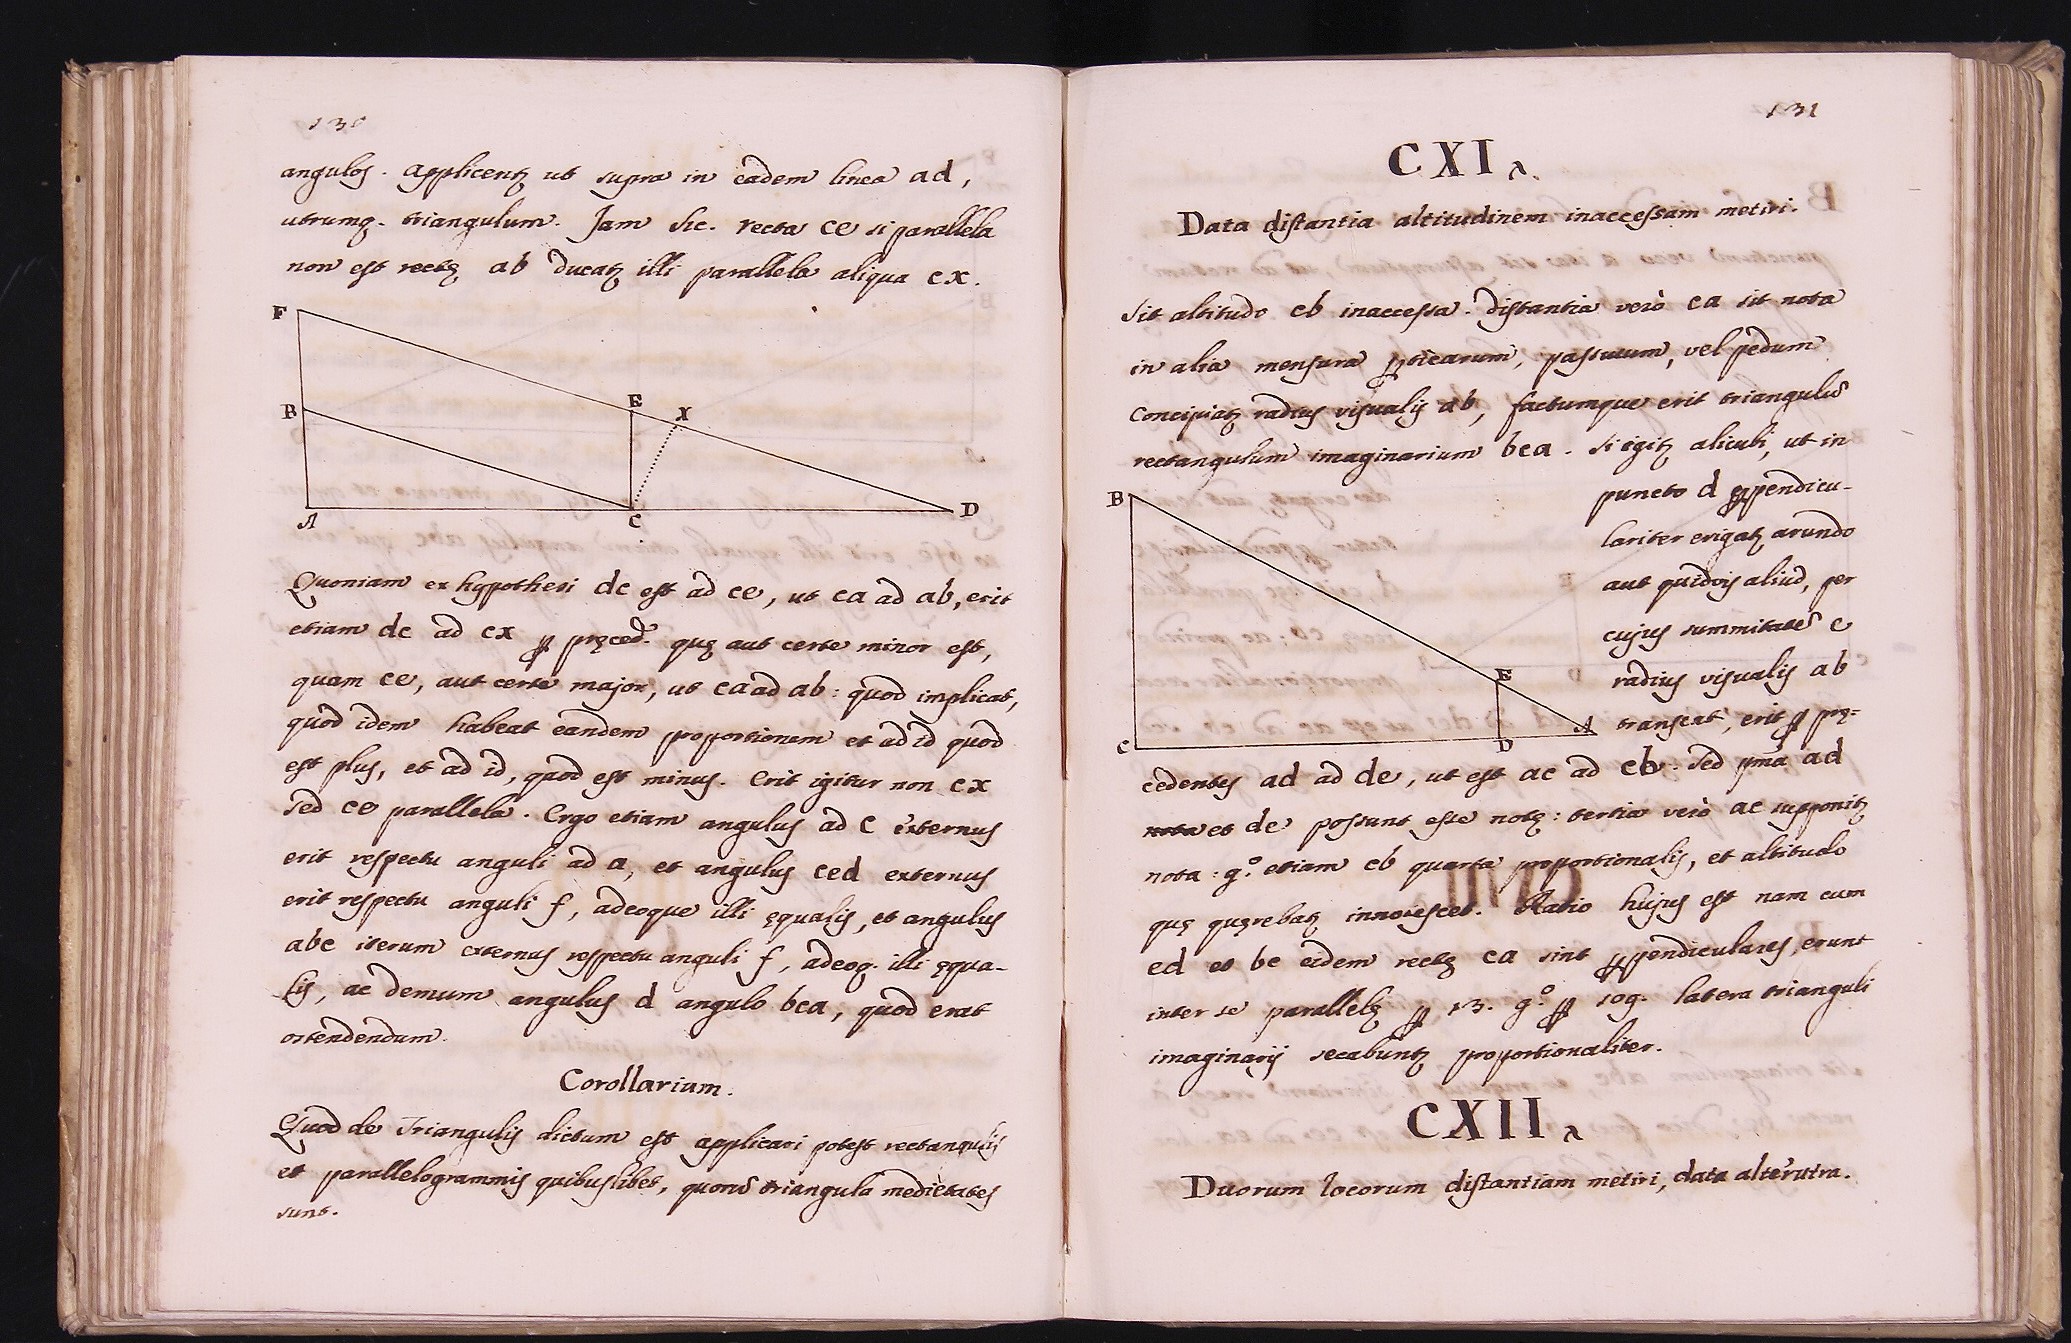 130
angulos. applicentꝫ ut supra in eadem linea ad,
utrumq. triangulum. Jam sic. recta ce si parallela
non est rectę ab ducatꝫ illi parallela aliqua cx.
F
B
E
X
A
C
D
Quoniam ex hypothesi dc est ad ce, ut ca ad ab, erit
etiam dc ad cx ꝑ pręced. quę aut certe minor est,
quam ce, aut certe major, ut ca ad ab: quod implicat,
quod idem habeat eandem proportionem et ad id quod
est plus, et ad id, quod est minus. Erit igitur non cx
sed ce parallela. Ergo etiam angulus ad c externus
erit respectu anguli ad a, et angulus ced externus
erit respectu anguli f, adeoque illi ęqualis, et angulus
abc iterum externus respectu anguli f, adeoq. illi ęqua-
lis, ac demum angulus d angulo bca, quod erat
ostendendum.
Corollarium.
Quod de Triangulis dictum est applicari potest rectangulis
et parallelogrammis quibuslibet, quorũ triangula medietates
sunt.
131
CXI
Data distantia altitudinem inaccessam metiri.
Sit altitudo cb inaccessa. distantia verò ca sit nota
in alia mensura ꝑticarum, passuum, vel pedum
Concipiatꝫ radius visualis ab, factumque erit triangulũ
rectangulum imaginarium bca. si igitꝫ alicubi, ut in
puncto d ꝑpendicu-
lariter erigatꝫ arundo
aut quidvis aliud, per
cujus summitatẽ e
radius visualis ab
transeat, erit ꝑ prę-
B
E
C
D
A
cedentes ad ad de, ut est ac ad cb. Sed pma ad
nota et de possunt esse notę: tertia verò ac supponitꝫ
nota: g.° etiam cb quarta proportionalis, et altitudo
quę quęrebatꝫ innotescet. Ratio hujus est nam cum
ed et bc eidem rectę ca sint ꝑpendiculares, erunt
inter se parallelę ꝑ 13. g.° ꝑ 109. latera trianguli
imaginarij secabuntꝫ proportionaliter.
CXII
Duorum locorum distantiam metiri, data alterutra.